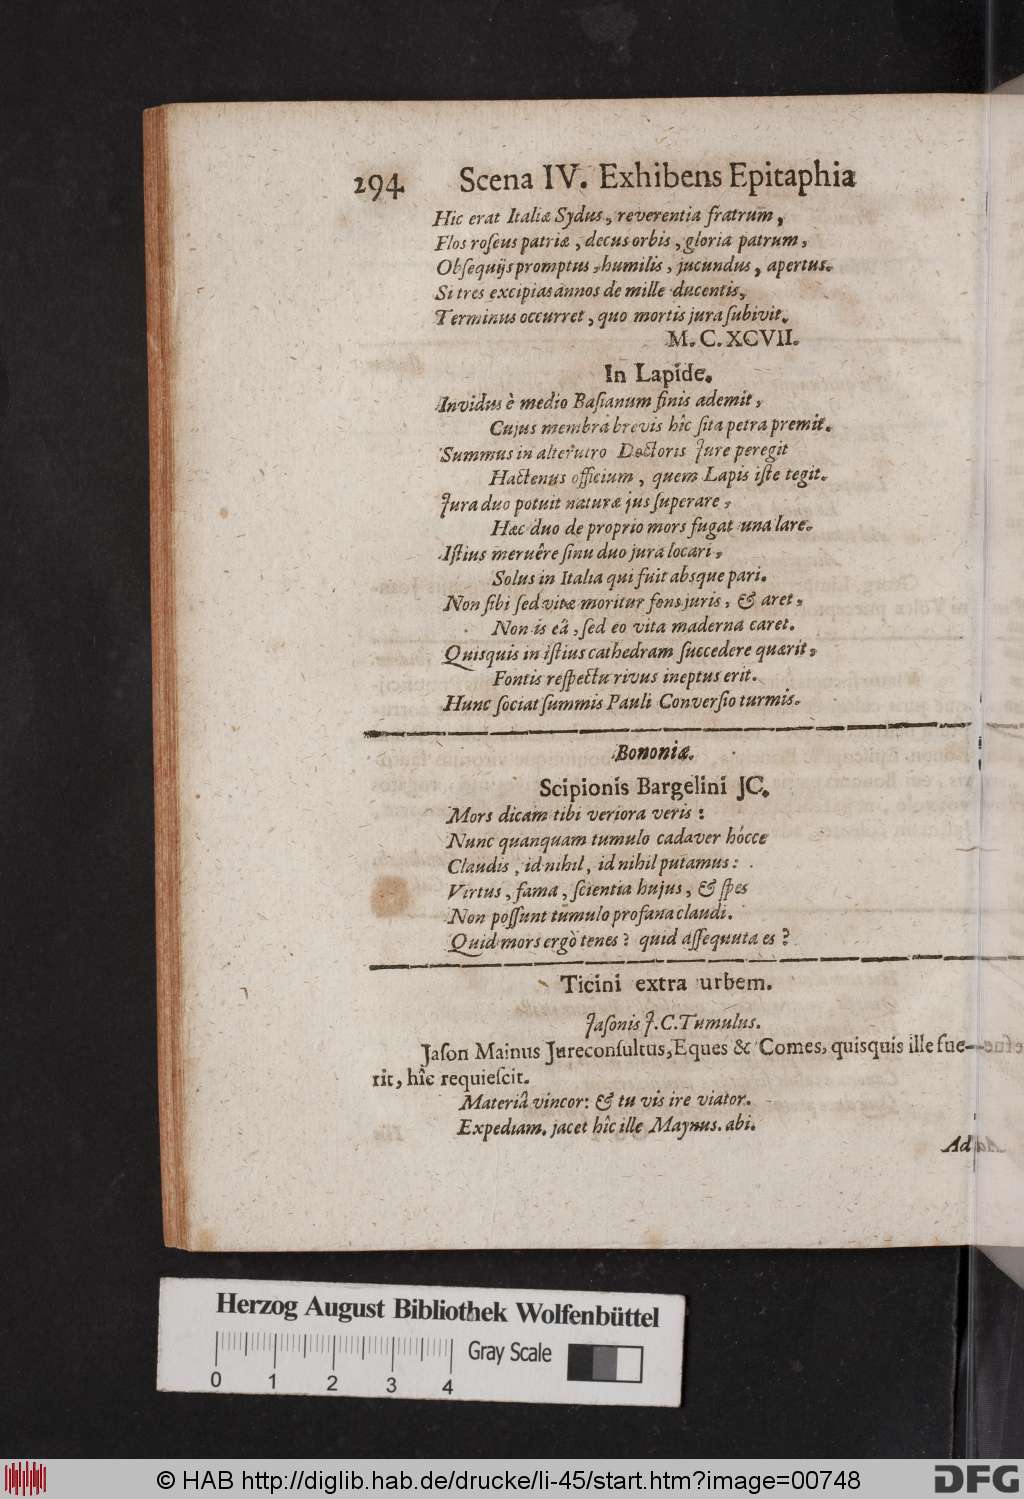 294 Scena IV. Exhibens Epitaphia
Hic erat Italiæ Sydus, reverentia fratrum,
Flos roſeus patriæ, decus orbis, gloria patrum,
Obſequijs promptus, humilis, jucundus, apertus.
Si tres excipias annos de mille ducentis,
Terminus occurret, quo mortis jura ſubivit.
M. C. XCVII.
In Lapide.
Invidus è medio Baſianum finis ademit,
Cujus membra brevis hîc ſita petra premit.
Summus in alterutro Doctoris Jure peregit
Hactenus officium, quem Lapis iſte tegit.
Jura duo potuit naturæ jus ſuperare,
Hæc duo de proprio mors fugat una lare.
Iſtius meruêre ſinu duo jura locari,
Solus in Italia qui fuit absque pari.
Non ſibi ſed vitæ moritur fons juris, & aret,
Non is eâ, ſed eo vita maderna caret.
Quisquis in iſtius cathedram ſuccedere quærit,
Fontis reſpectu rivus ineptus erit.
Hunc ſociat ſummis Pauli Converſio turmis.
Bononiæ.
Scipionis Bargelini JC.
Mors dicam tibi veriora veris:
Nunc quanquam tumulo cadaver hócce
Claudis, id nihil, id nihil putamus:
Virtus, fama, ſcientia hujus, & ſpes
Non poſſunt tumulo profana claudi.
Quid mors ergò tenes? quid aſſequuta es?
Ticini extra urbem.
Jaſonis J. C. Tumulus.
Jaſon Mainus Jureconſultus, Eques & Comes, quisquis ille fue-
rit, hîc requieſcit.
Materiâ vincor: & tu vis ire viator.
Expediam. jacet hîc ille Maynus. abi.
Ad
Herzog August Bibliothek Wolfenbüttel
Gray Scale
0 1 2 3 4
© HAB http://diglib.hab.de/drucke/li-45/start.htm?image=00748
DFG